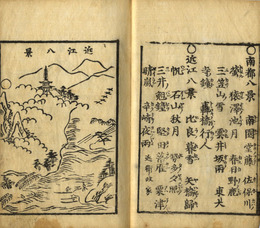 〇南都八景 南圓堂藤 佐保川
螢 猿澤池月 春日野鹿
三笠山雪 雲井坂雨 東大
寺鐘 轟橋行人
〇近江八景 比良暮雪 矢橋歸
帆 石山秋月 勢多夕照
三井晩鐘 堅田落雁 粟津
晴嵐 辛崎夜雨
近江八景